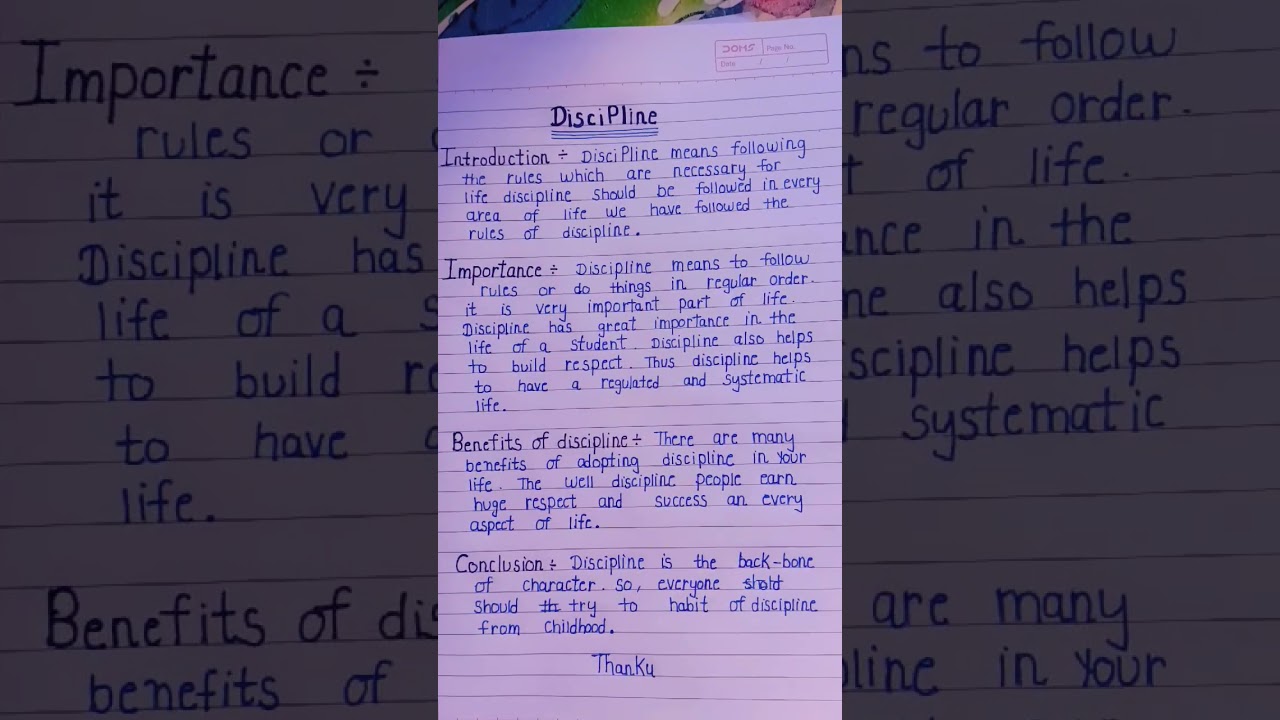 DOMS Page No.
Date / /
DisciPline
Introduction ÷ DisciPline means following
the rules which are necessary for
life discipline should be followed in every
area of life we have followed the
rules of discipline.
Importance ÷ Discipline means to follow
rules or do things in regular order.
it is very important part of life.
Discipline has great importance in the
life of a student. Discipline also helps
to build respect. Thus discipline helps
to have a regulated and systematic
life.
Benefits of discipline ÷ There are many
benefits of adopting discipline in your
life. The well discipline people earn
huge respect and success an every
aspect of life.
Conclusion ÷ Discipline is the back-bone
of character. so, everyone
should try to habit of discipline
from childhood.
Thanku
Importance ÷
rules or
it is very
Discipline has
life of a
to build
to have
life.
Benefits of
benefits of
to follow
regular order.
of life.
in the
also helps
helps
systematic
are many
in your